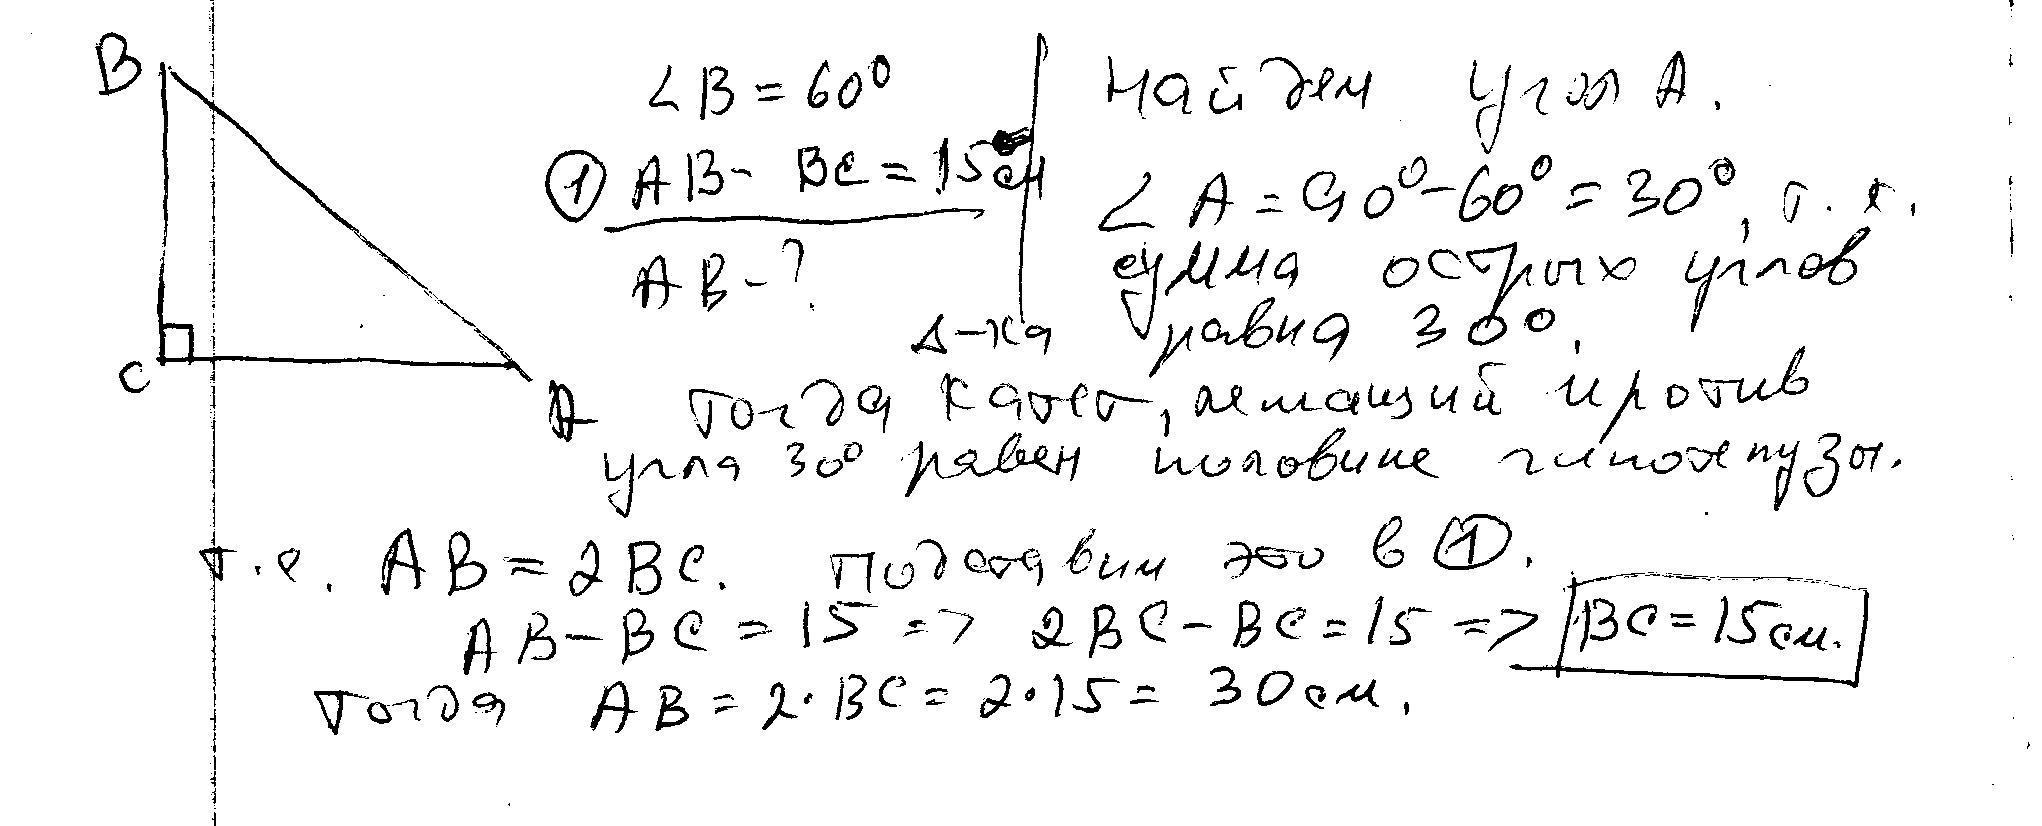 B
∠B = 60°
① AB - BC = 15 см
AB - ?
C
A
Найдем угол A.
∠A = 90° - 60° = 30°, т. к.
сумма острых углов
Δ-ка равна 30°.
Тогда катет, лежащий против
угла 30° равен половине гипотенузы.
т.е. AB = 2BC. Подставим это в ①.
AB - BC = 15 => 2BC - BC = 15 => BC = 15 см.
Тогда AB = 2·BC = 2·15 = 30 см.